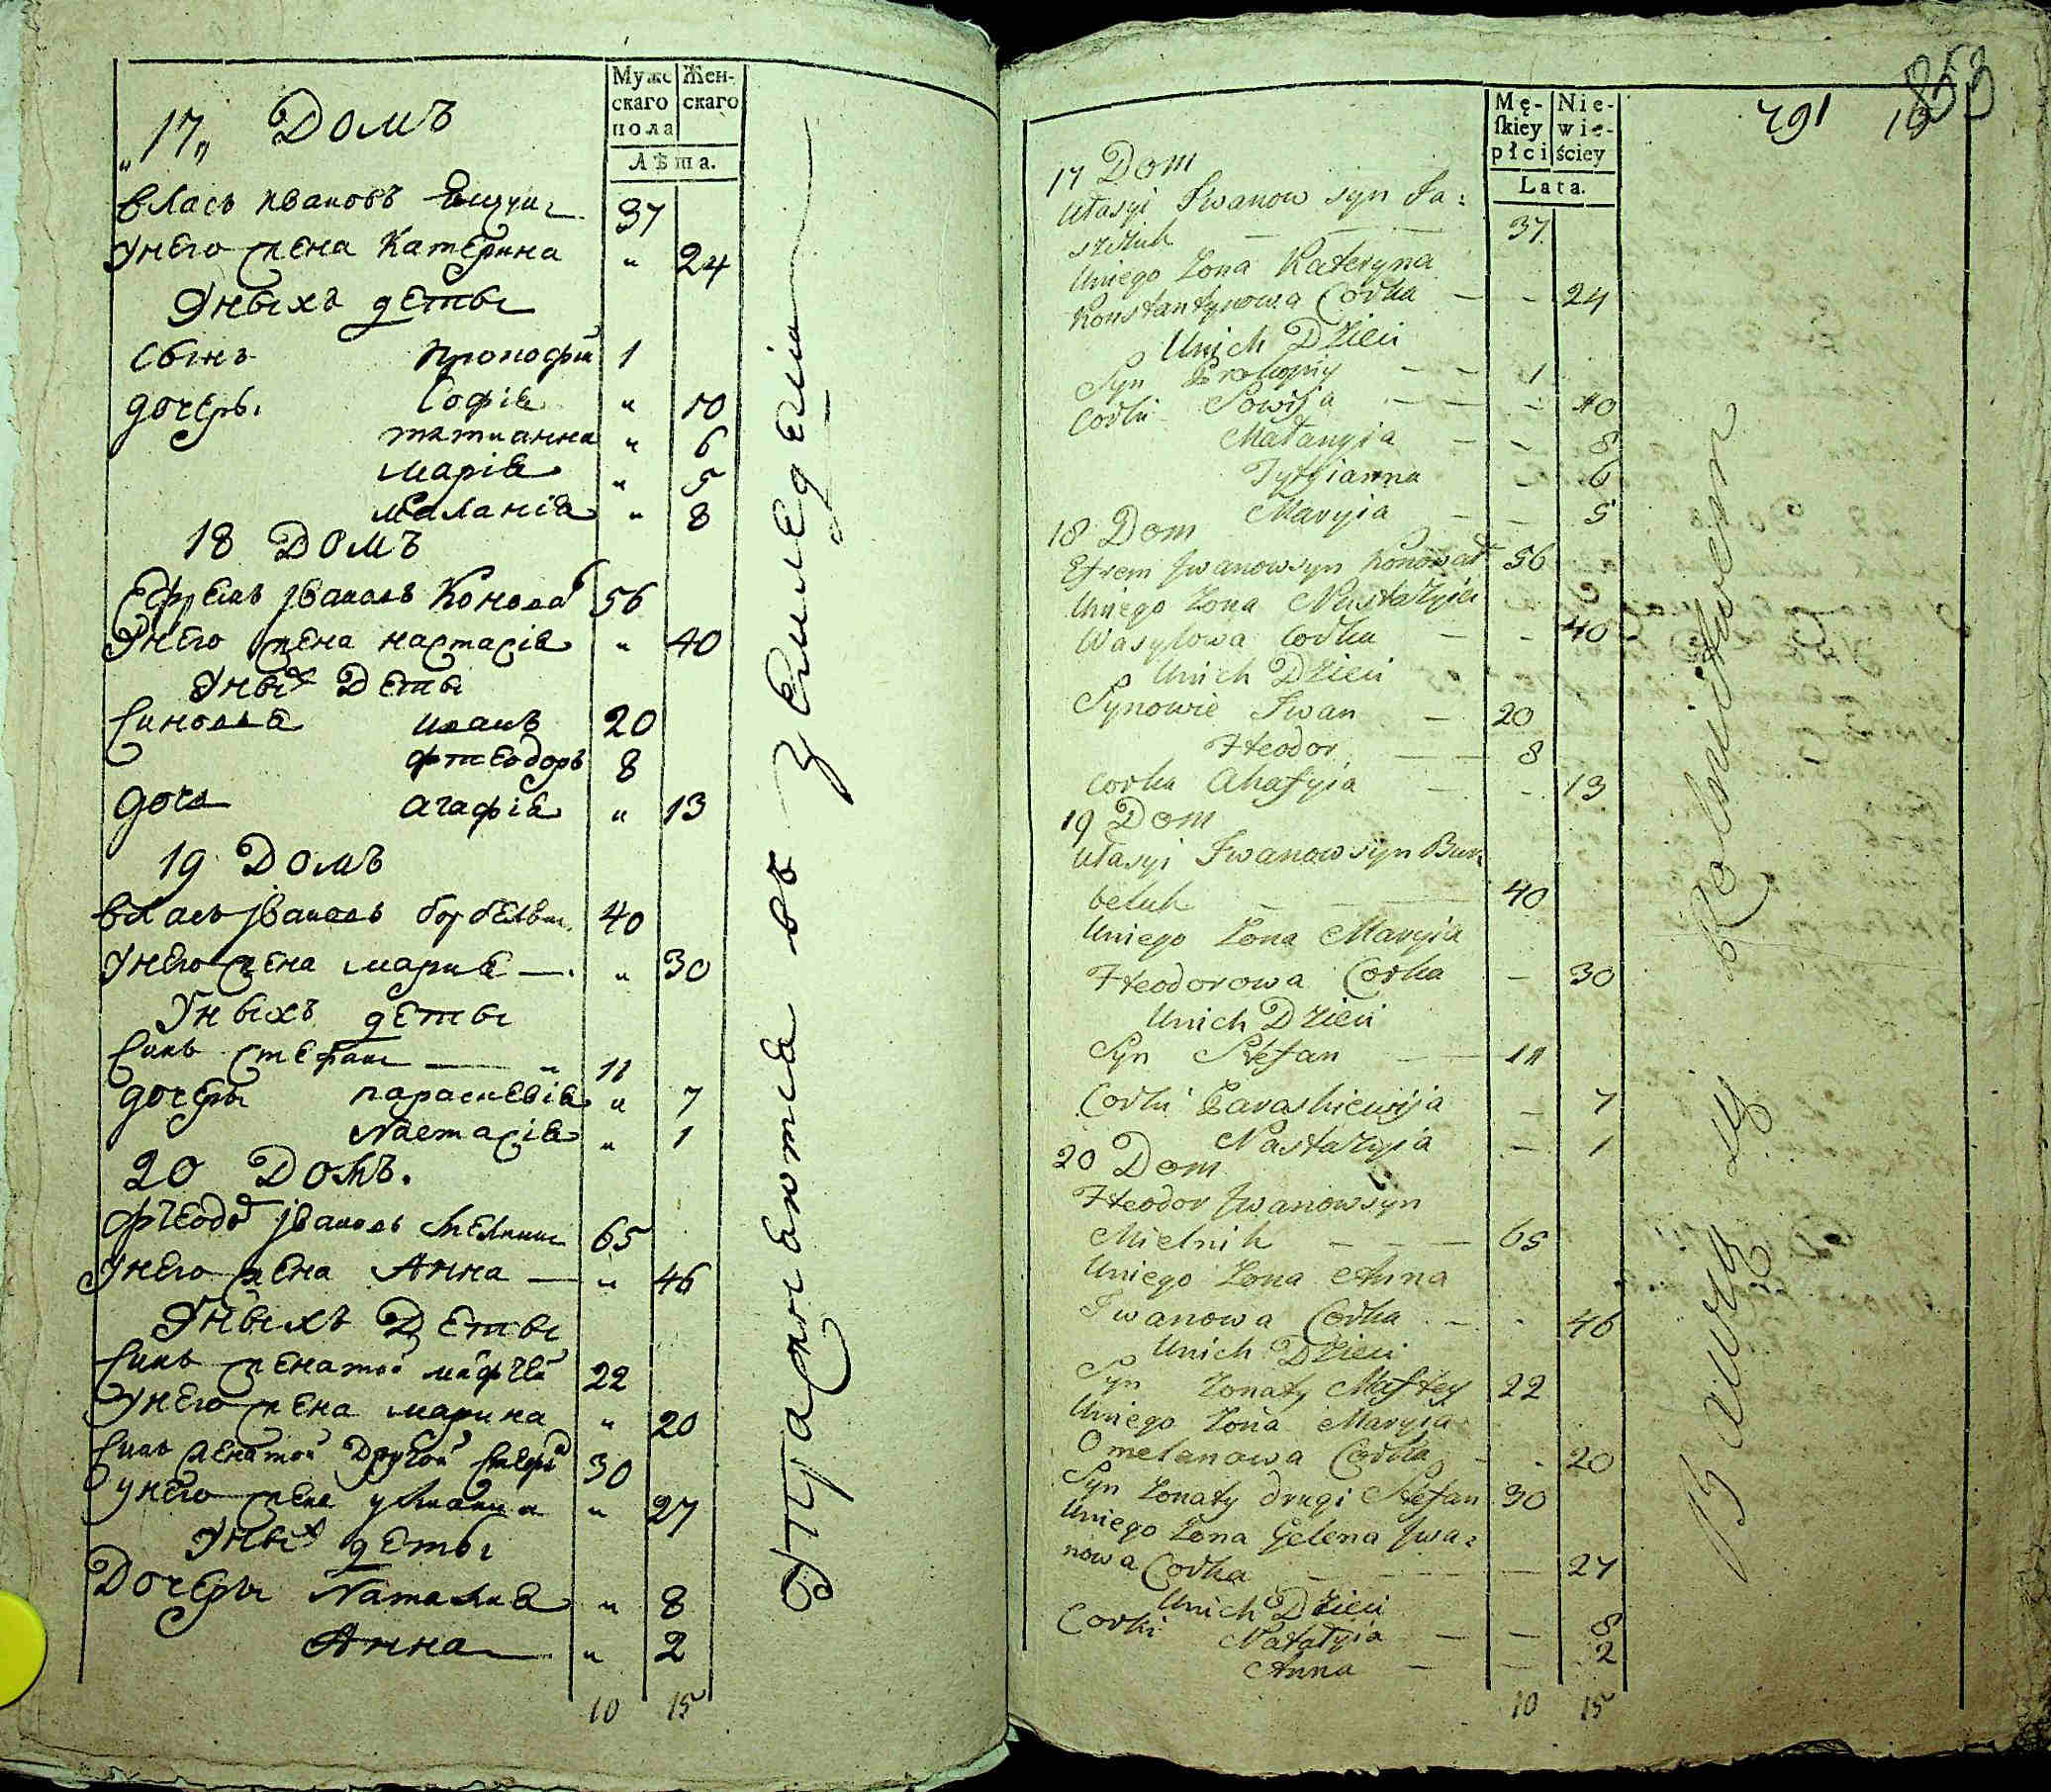 Мужс Жен-
скаго скаго
пола
Лѣта.
„17„ Домъ
Власъ Ивановъ 37
Унего жена Катерина „ 24
Уныхъ деты
Сынъ Прокофий 1
дочеры Софія „ 10
татианна „ 6
марія „ 5
маланія „ 8
18 Домъ
Ефремъ Івановъ Коновал 56
Унего жена настасія „ 40
Уных Деты
Синовья иванъ 20
фтеодоръ 8
доч агафія „ 13
19 Домъ
Власъ Івановъ 40
Унего жена мария — „ 30
Уныхъ деты
Синъ стефанъ — „ 11
дочеры параскевія „ 7
Настасія „ 1
20 Домъ.
Фтеодор Івановъ Мелникъ 65
Унего жена Анна — „ 46
Уныхъ Деты
Синъ женатой мафтей 22
Унего жена марина „ 20
Синъ женатой Другой 30
Унего жена улиана „ 27
Уных деты
Дочеры Наталия „ 8
Анна „ 2
10 15
Упражняются въ земледелии
853
791
Mę- Nie-
skiey wie-
płci ściey
Lata.
17 Dom
Ułasyi Iwanow syn Ja:
szczuk — — — 37
Uniego Żona Kateryna
Konstantynowa Corka — - 24
Unich Dzieci
Syn Prokopiy — — 1
Corki Sowija — — - 10
Małanyia — - 8
Tytyianna - 6
Maryia — — 5
18 Dom
Efrem Iwanow syn Konował 56
Uniego Żona Nastazyia
Wasylowa Corka — - 40
Unich Dzieci
Synowie Iwan — 20
Fteodor — — 8
Corka Ahafyia — - 13
19 Dom
Ułasyi Iwanow syn Bur
beluk — — 40
Uniego Żona Maryia
Fteodorowa Corka — 30
Unich Dzieci
Syn Stefan — — 11
Corki Paraskiewija — 7
Nastazyia — 1
20 Dom
Fteodor Iwanow syn
Mielnik — — — 65
Uniego Żona Anna
Iwanowa Corka — - 46
Unich Dzieci
Syn Żonaty Maftey 22
Uniego Żona Maryia
Omelanowa Corka - - 20
Syn Żonaty drugi Stefan 30
Uniego Żona Gelena Iwa:
nowa Corka — — — 27
Unich Dzieci
Corki Natalyia — — 8
Anna — — 2
10 15
Bawią się Rolnictwem